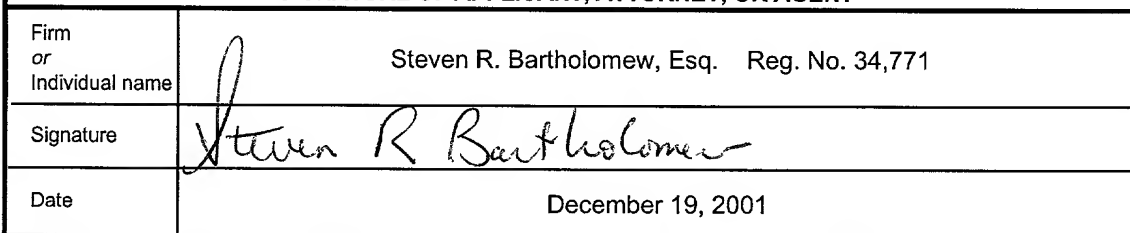 APPLICANT, ATTORNEY, OR AGENT
Firm
or
Individual name
Steven R. Bartholomew, Esq. Reg. No. 34,771
Signature
Steven R Bartholomew
Date
December 19, 2001